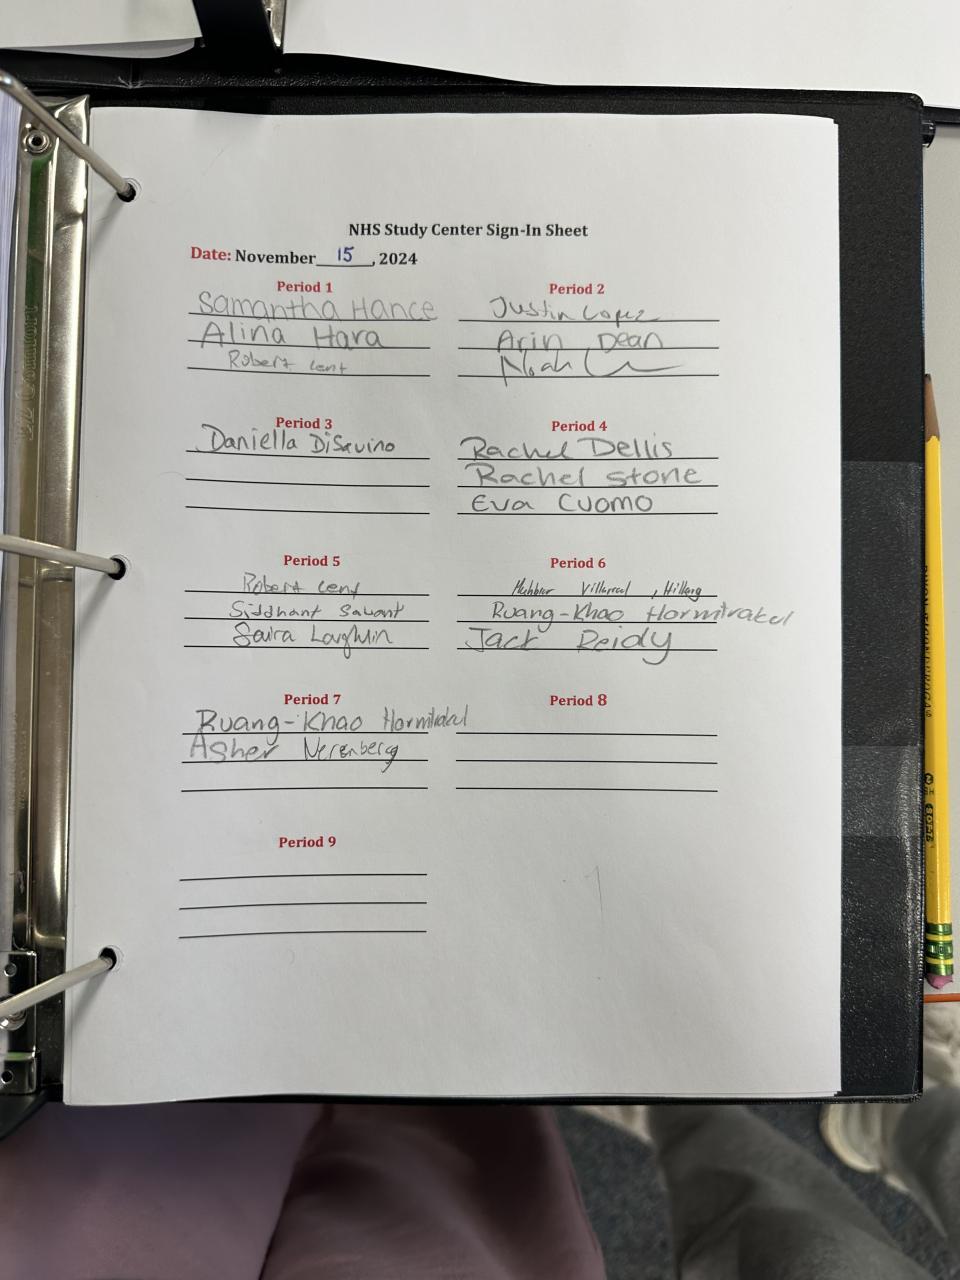 NHS Study Center Sign-In Sheet
Date: November 15, 2024
Period 1
Samantha Hance
Alina Hara
Robert Lent
Period 2
Justin Lopez
Arin Dean
Noah
Period 3
Daniella DiSavino
Period 4
Rachel Dellis
Rachel Stone
Eva Cuomo
Period 5
Robert Lent
Siddhant Sawant
Saira Loughlin
Period 6
Villarreal , Hillary
Ruang-Khao Hormitrakul
Jack Reidy
Period 7
Ruang-Khao Hormitrakul
Asher Nerenberg
Period 8
Period 9